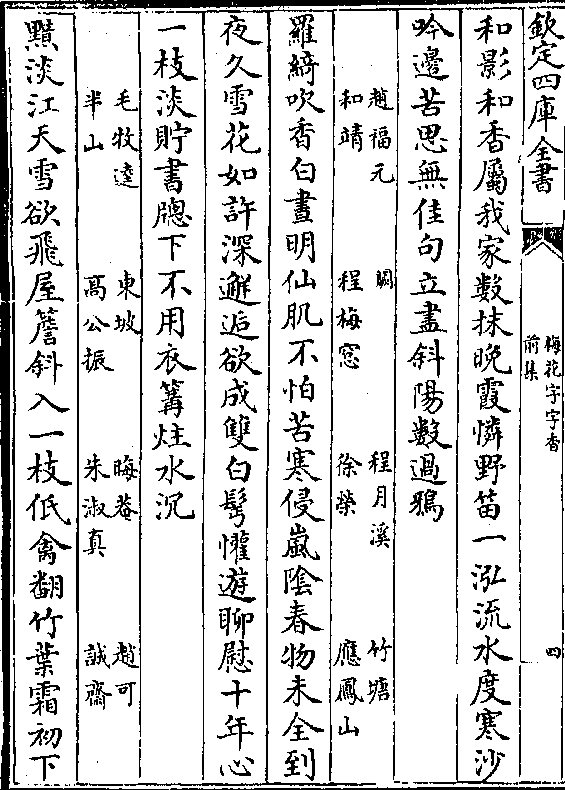 欽定四庫全書
梅花字字香
前集
四
和影和香屬我家數抹晚霞憐野笛一泓流水度寒沙
吟邉苦思無佳句立盡斜陽數過鴉
趙福元
和靖
程梅窓
程月溪
徐榮
竹塘
應鳳山
羅綺吹香白晝明仙肌不怕苦寒侵嵐陰春物未全到
夜久雪花如許深邂逅欲成雙白髩懽遊聊慰十年心
一枝淡貯書牕下不用衣篝炷水沉
毛牧逵
半山
東坡
髙公振
晦菴
朱淑真
趙可
誠齋
黲淡江天雪欲飛屋簷斜入一枝低禽翻竹葉霜初下